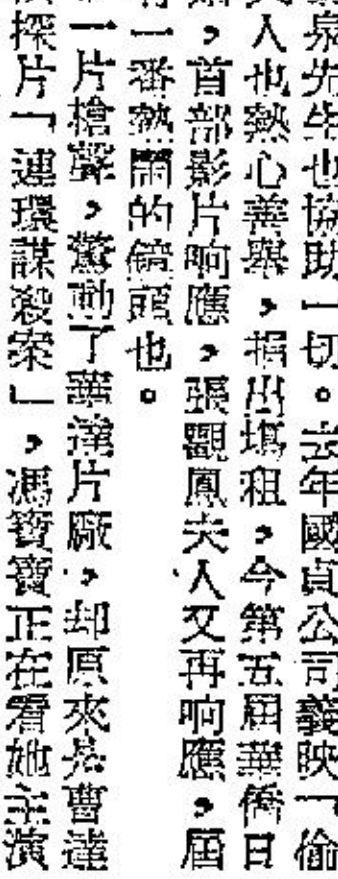 泉先生也協助一切。去年國貞公司義映「偷
人也熱心善舉，捐出塲租，今第五屆華僑日
，首部影片响應，張觀鳳夫人又再响應，屆
一番熱鬧的鏡頭也。
一片槍聲，驚動了華達片廠，却原來是曹達
探片「連環謀殺案」，馮寶寶正在看她主演